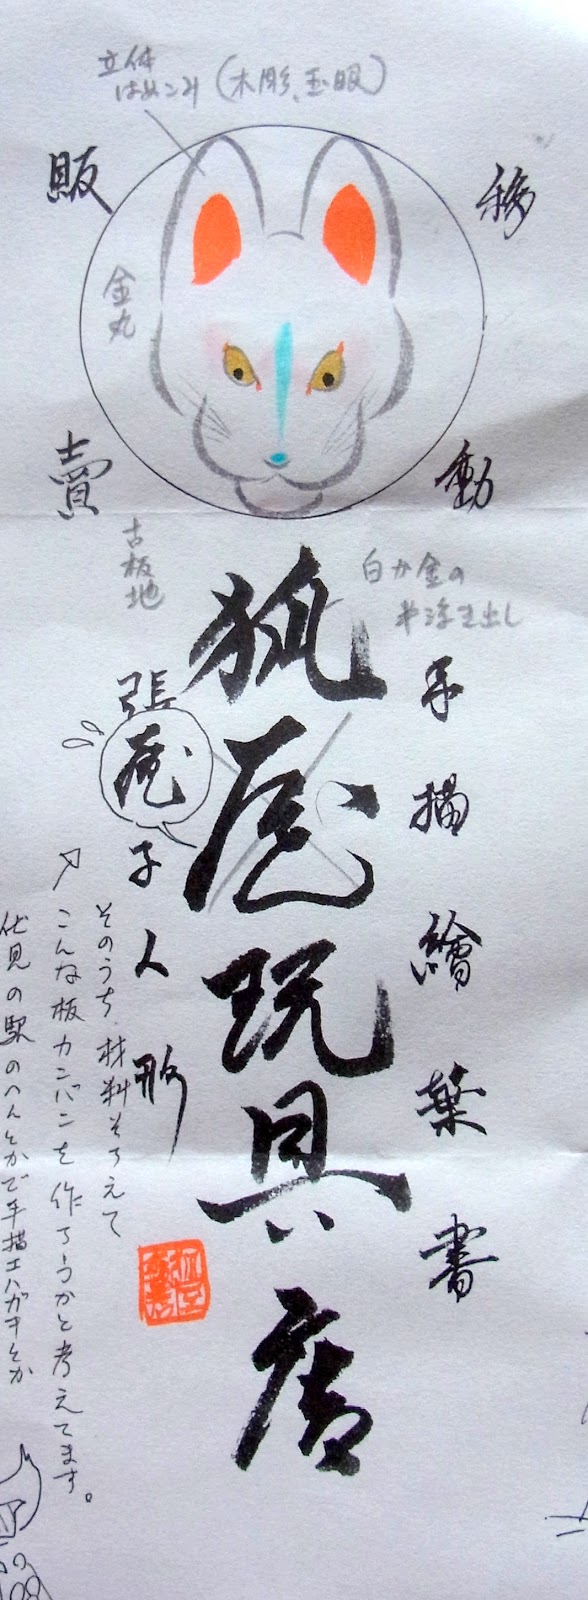 立体
はめこみ(木彫、玉眼)
移動
販賣
金丸
古板地
白か金の
浮き出し
手描繪葉書
狐屋玩具店
張子人形
そのうち、材料そろえて
こんな板カンバンを作ろうかと考えてます。
伏見の駅のへんとかで手描エハガキとか